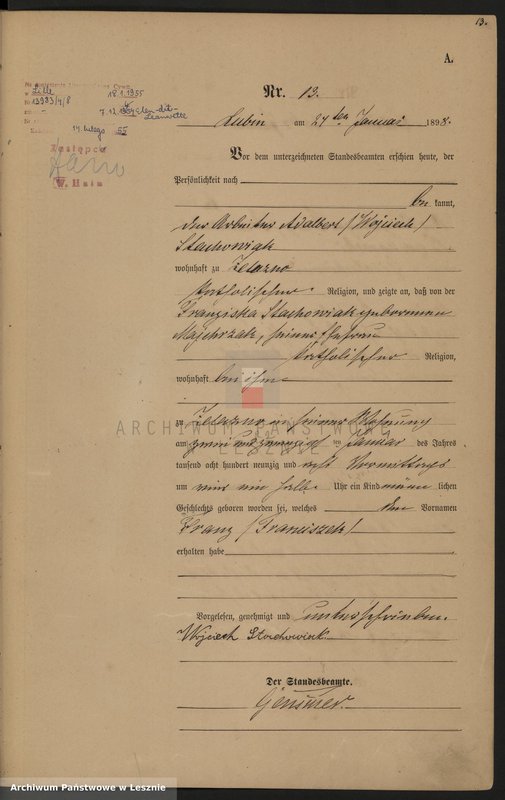 13.
A.
Nr. 13.
Lille
18.1.1955
13983/4/8
7.12.1954
14 lutego 55
Zastępca
W. Huin
Lubin am 27ten Januar 1898.
Vor dem unterzeichneten Standesbeamten erschien heute, der
Persönlichkeit nach
be kannt,
der Arbeiter Adalbert /Wojciech/
Stachowiak
wohnhaft zu Zelazno
katholischer Religion, und zeigte an, daß von der
Franziska Stachowiak geborenen
Majchrzak, seiner Ehefrau
katholischer Religion,
wohnhaft bei ihm
zu Zelazno in seiner Wohnung
am zwei und zwanzigsten Januar des Jahres
tausend acht hundert neunzig und acht Vormittags
um ein halb Uhr ein Kind männ lichen
Geschlechts geboren worden sei, welches den Vornamen
Franz /Franciszek/
erhalten habe
Vorgelesen, genehmigt und unterschrieben.
Wojciech Stachowiak
Der Standesbeamte.
ARCHIWUM PAŃSTWOWE
LESZNIE
Archiwum Państwowe w Lesznie